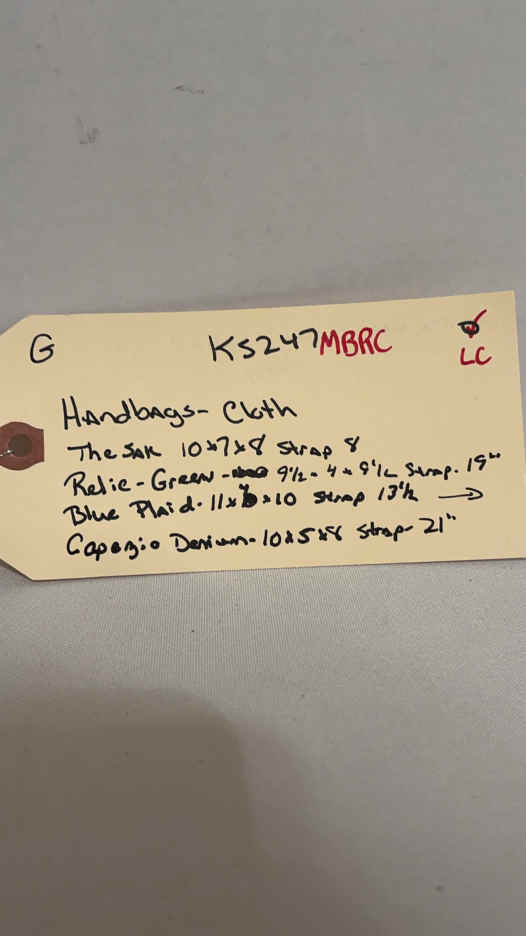 G KS247MBRC
LC
Handbags- Cloth
The SAK 10x7x8 Strap 8
Relic-Green - 9½ - 4 x 9½ Strap. 19"
Blue Plaid- 11x x10 Strap 13½ →
Capezio Denium- 10x5x8 Strap- 21"